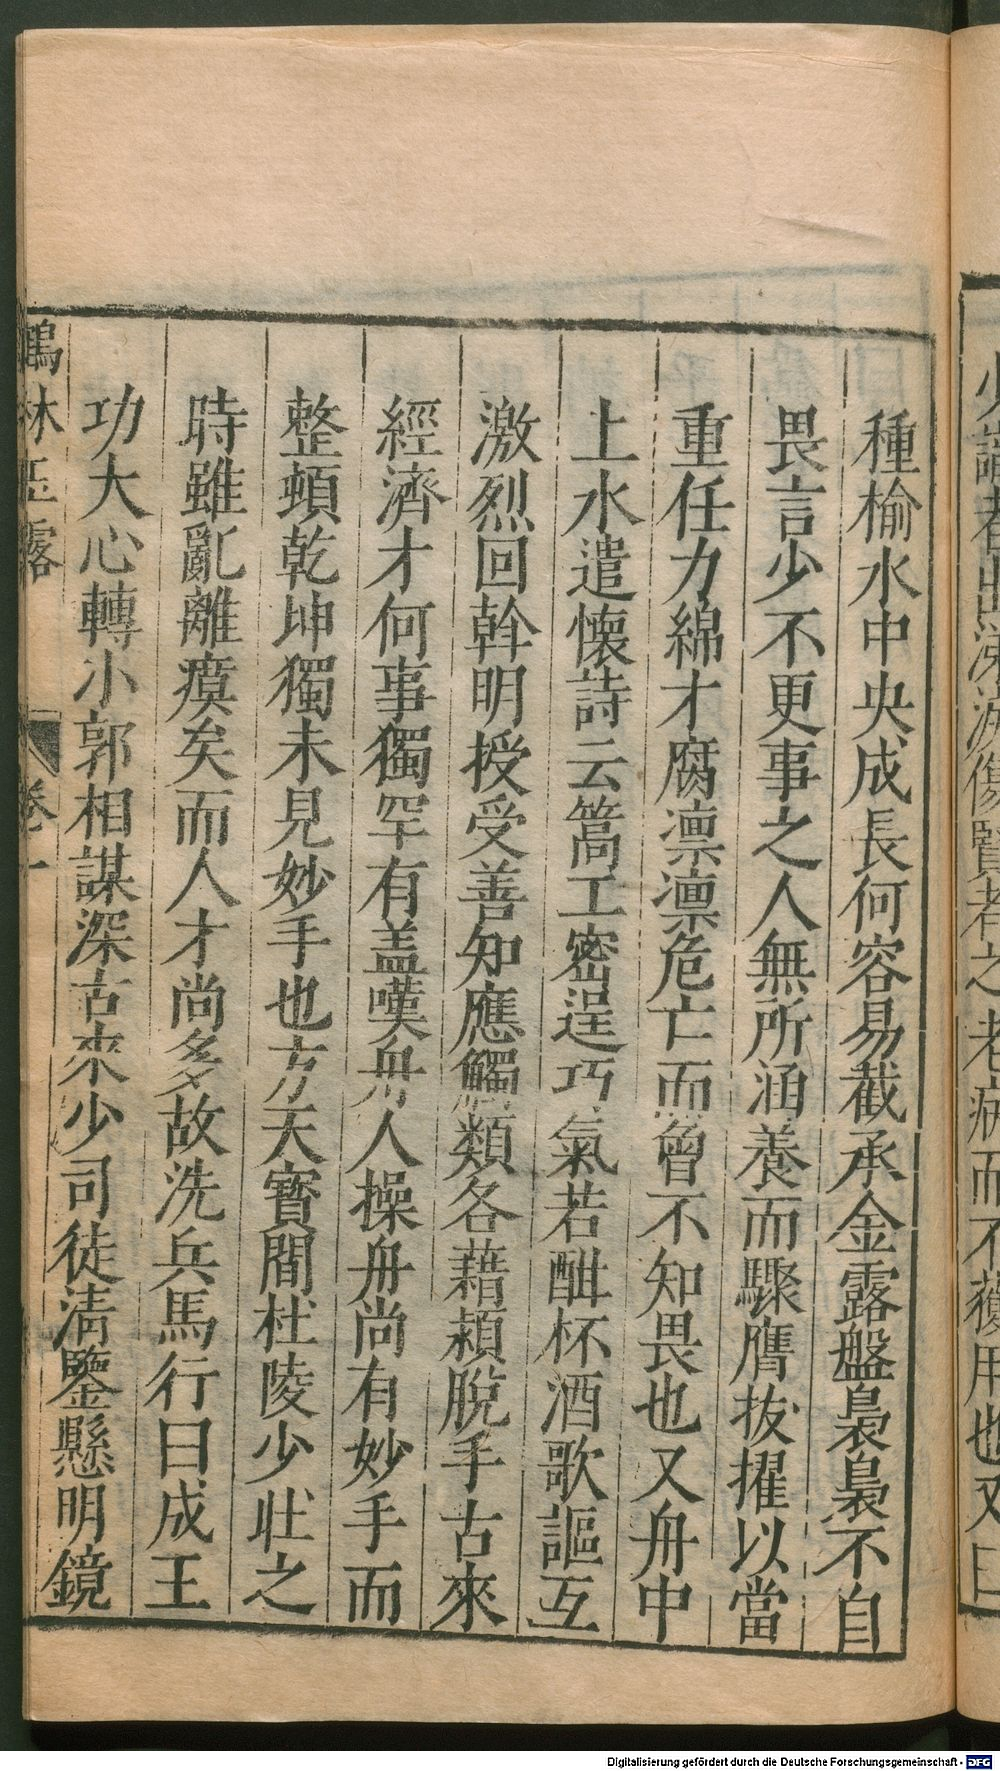 種榆水中央成長何容易截承金露盤裊裊不自
畏言少不更事之人無所涵養而驟膺拔擢以當
重任力綿才腐凛凛危亡而曾不知畏也又舟中
上水遣懷詩云篙工密逞巧氣若酣杯酒歌謳互
激烈回斡明授受善知應觸類各藉穎脫手古來
經濟才何事獨罕有盖嘆舟人操舟尚有妙手而
整頓乾坤獨未見妙手也方天寶間杜陵少壯之
時雖亂離瘼矣而人才尚多故洗兵馬行曰成王
功大心轉小郭相謀深古來少司徒清鑒懸明鏡
鶴林玉露
卷一
Digitalisierung gefördert durch die Deutsche Forschungsgemeinschaft - DFG